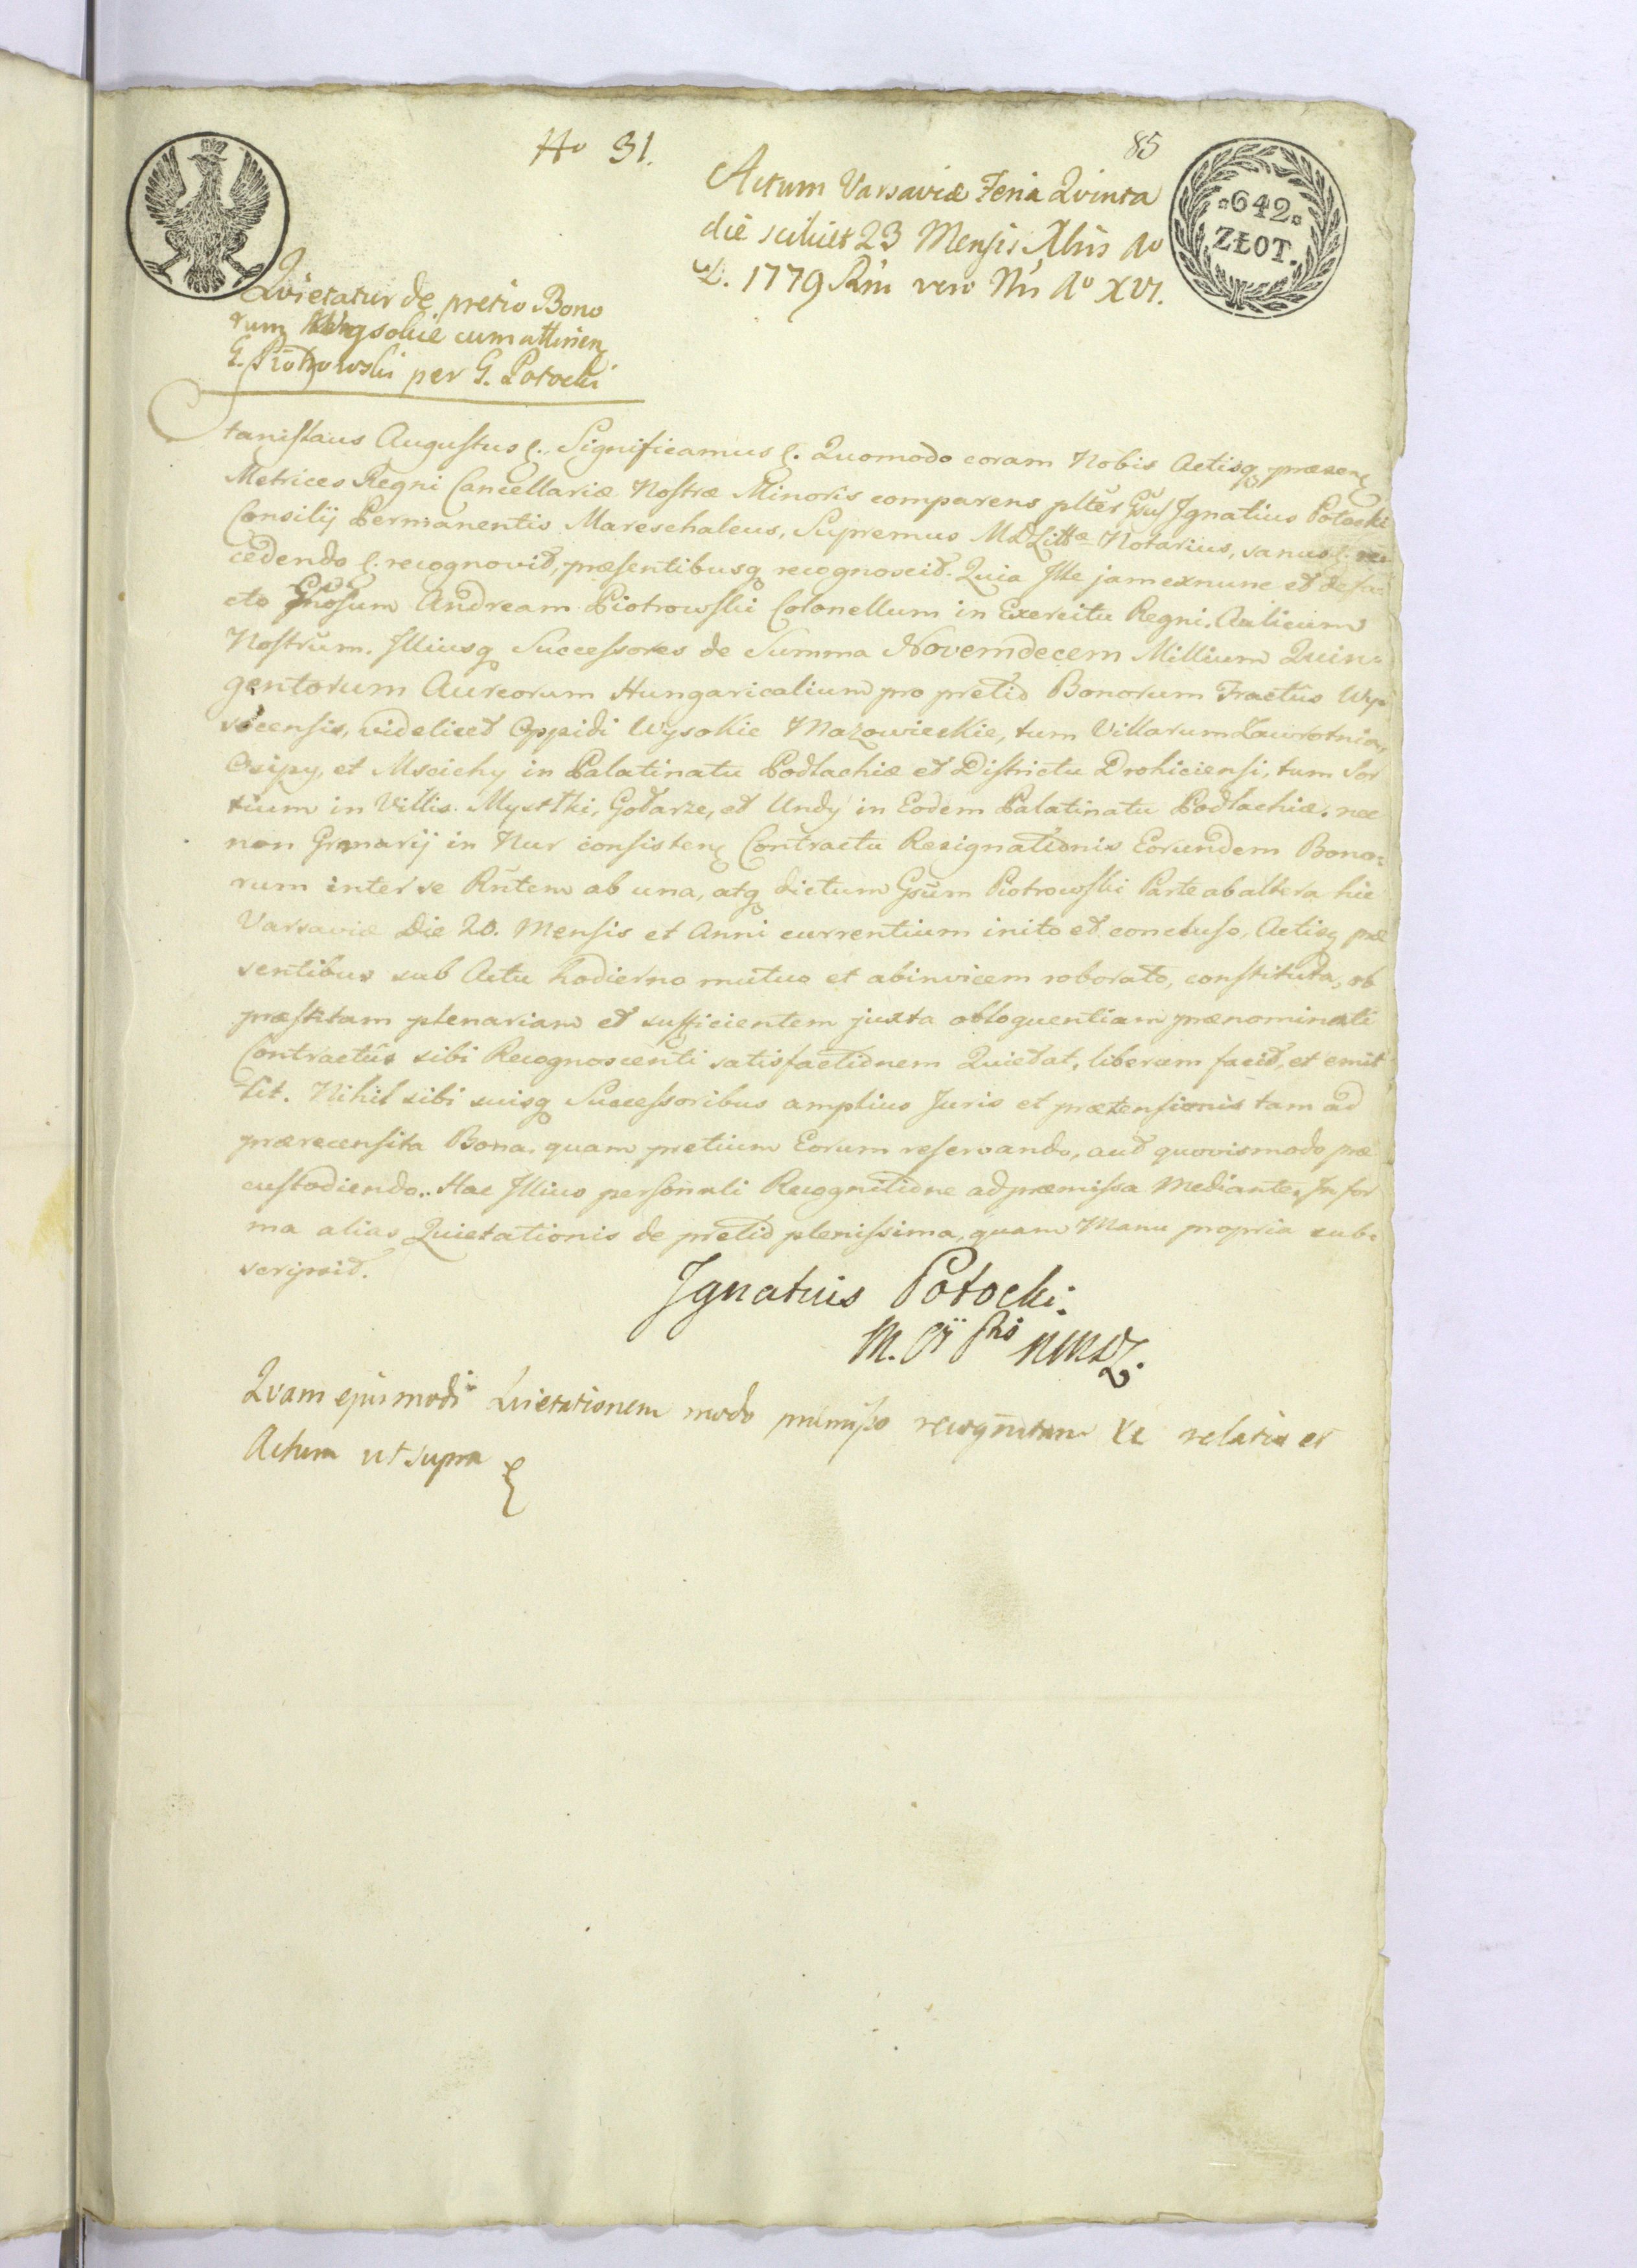 No 31.
85
Actum Varsaviæ Feria Qvinta
die scilicet 23 Mensis Xbris Ao
D. 1779 Rni vero Nri Ao XVI.
°642°
ZŁOT.
Qvietatur de pretio Bono
rum Wysokie cum attinen
G. Piotrowski per G. Potocki
Stanislaus Augustus &. Significamus &. Quomodo coram Nobis Actisq præsen
Metrices Regni Cancellariæ Nostræ Minoris comparens plter Gsus Ignatius Potocki
Consilij Permanentis Mareschalcus, Supremus MDLittæ Notarius, sanus &. re
cedendo &. recognovit, præsentibusq recognoscit. Quia Ille jam exnunc et de fa=
cto Gnosum Andream Piotrowski Colonellum in Exercitu Regni, Aulicum
Nostrum. Illiusq Successores de Summa Novemdecem Millium Quin=
gentorum Aureorum Hungaricalium pro pretio Bonorum Tractûs Wy=
socensis, videlicet Oppidi Wysokie Mazowieckie, tum Villarum Zawrotnia,
Osipy, et Mscichy in Palatinatu Podlachiæ et Districtu Drohiciensi, tum Sor
tium in Villis Mystki, Gołarze, et Undy in Eodem Palatinatu Podlachiæ. nec
non Granarij in Nur consisten Contractu Resignationis Eorundem Bono=
rum inter se Rntem ab una, atq dictum Gsum Piotrowski Parte ab altera hic
Varsaviæ Die 20. Mensis et Anni currentium inito et concluso, Actisq præ
sentibus sub Actu hodierno mutuo et abinvicem roborato, constituta, ob
præstitam plenariam et sufficientem juxta obloquentiam prænominati
Contractûs sibi Recognoscenti satisfactionem Quietat, liberum facit, et emit
tit. Nihil sibi suisq Successoribus amplius Juris et prætensionis tam ad
prærecensita Bona, quam pretium Eorum reservando, aut quovismodo præ
custodiendo. Hac Illius personali Recognitione ad præmissa Mediante. In for
ma alias Quietationis de pretio plenissima, quam Manu propria sub=
scripsit.
Ignatius Potocki.
Qvam ejusmodi Qvietationem modo præmisso recognitam &c relatio et
Actum ut supra